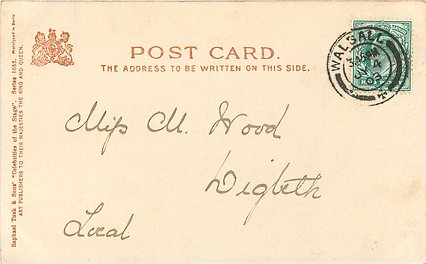 POST CARD.
THE ADDRESS TO BE WRITTEN ON THIS SIDE.
WALSALL
Miss M. Wood
Digbeth
Local
Raphael Tuck & Sons' "Celebrities of the Stage". Series 1083.
ART PUBLISHERS TO THEIR MAJESTIES THE KING AND QUEEN.